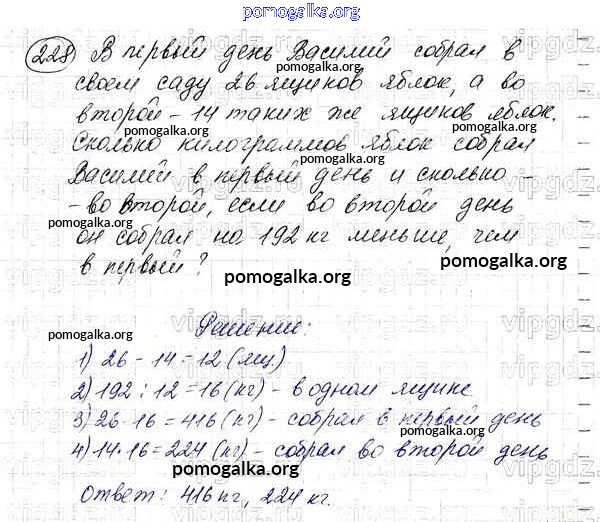 pomogalka.org
228 В первый день Василий собрал в
своем саду 26 ящиков яблок, а во
второй - 14 таких же ящиков яблок.
pomogalka.org
pomogalka.org
Сколько килограммов яблок собрал
pomogalka.org
Василий в первый день и сколько -
- во второй, если во второй день
pomogalka.org
он собрал на 192 кг меньше, чем
в первый?
pomogalka.org
pomogalka.org
Решение:
pomogalka.org
1) 26 - 14 = 12 (ящ)
2) 192 : 12 = 16 (кг) - в одном ящике
3) 26 · 16 = 416 (кг) - собрал в первый день
pomogalka.org
pomogalka.org
4) 14 · 16 = 224 (кг) - собрал во второй день
pomogalka.org
Ответ: 416 кг, 224 кг.
pomogalka.org